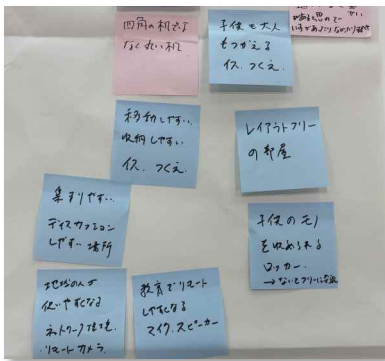 四角の机でよ
なく丸い机
子供も大人
もつかえる
イス、つくえ
移動しやすい
収納しやすい
イス、つくえ
レイアウトフリー
の部屋
集まりやすい
ディスカッション
しやすい場所
子供のモノ
を収められる
ロッカー
地域の人が
使いやすくなる
ネットワーク
リモートカメラ
教育でリモート
しやすくなる
マイク、スピーカー